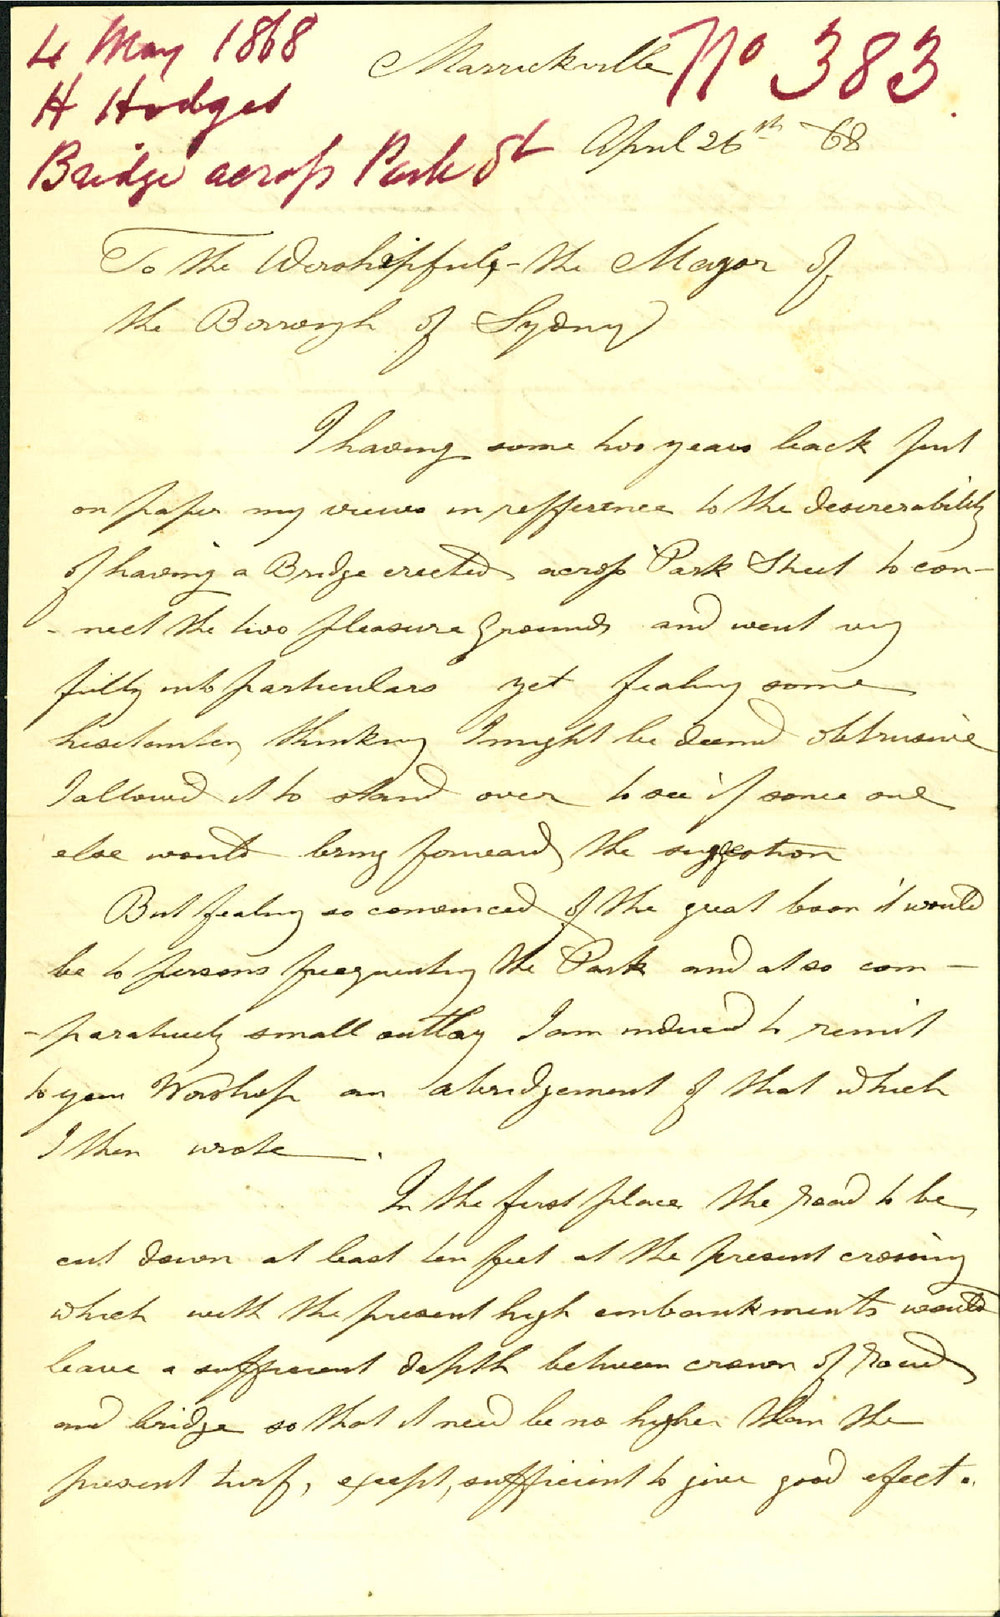 4 May 1868
H Hodges
Bridge across Park St
No 383
Marrickville
April 26th 68
To the Worshipful, the Mayor of
the Borrough of Sydny
I having some two years back put
on paper my views in refference to the desirerability
of having a Bridge erected across Park Street to con-
-nect the two pleasure grounds and went very
fully into particulars yet fealing some
hesitantcy thinking I might be deemd obtrusive
I allowed it to stand over to see if some one
else would bring forward the suggestion
But fealing so convinced of the great boon it would
be to persons frequenting the Park and at so com-
-paratively small outlay I am induced to remit
to your Worship an abridgement of that which
I then wrote.
In the first place the road to be
cut down at least ten feet at the present crossing
which with the present high embankments would
leave a sufficient depth between crown of road
and bridge so that it need be no higher than the
present turf, except, sufficient to give good efect.